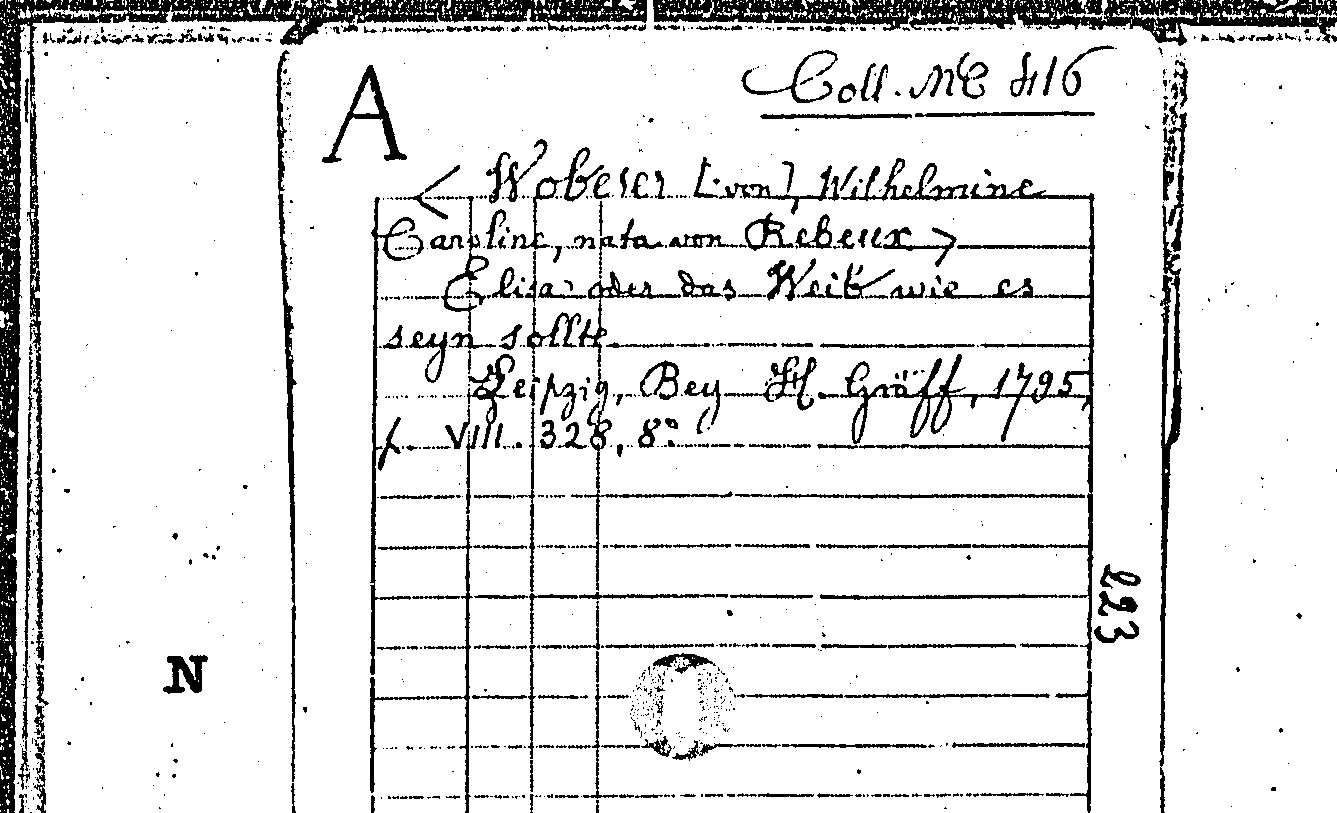 A
Coll. MC 416
< Wobeser [von], Wilhelmine
Caroline, nata von Rebeur >
Elisa oder das Weib wie es
seyn sollte.
Leipzig, Bey H. Gräff, 1795,
p. VIII. 328, 8°
223
N